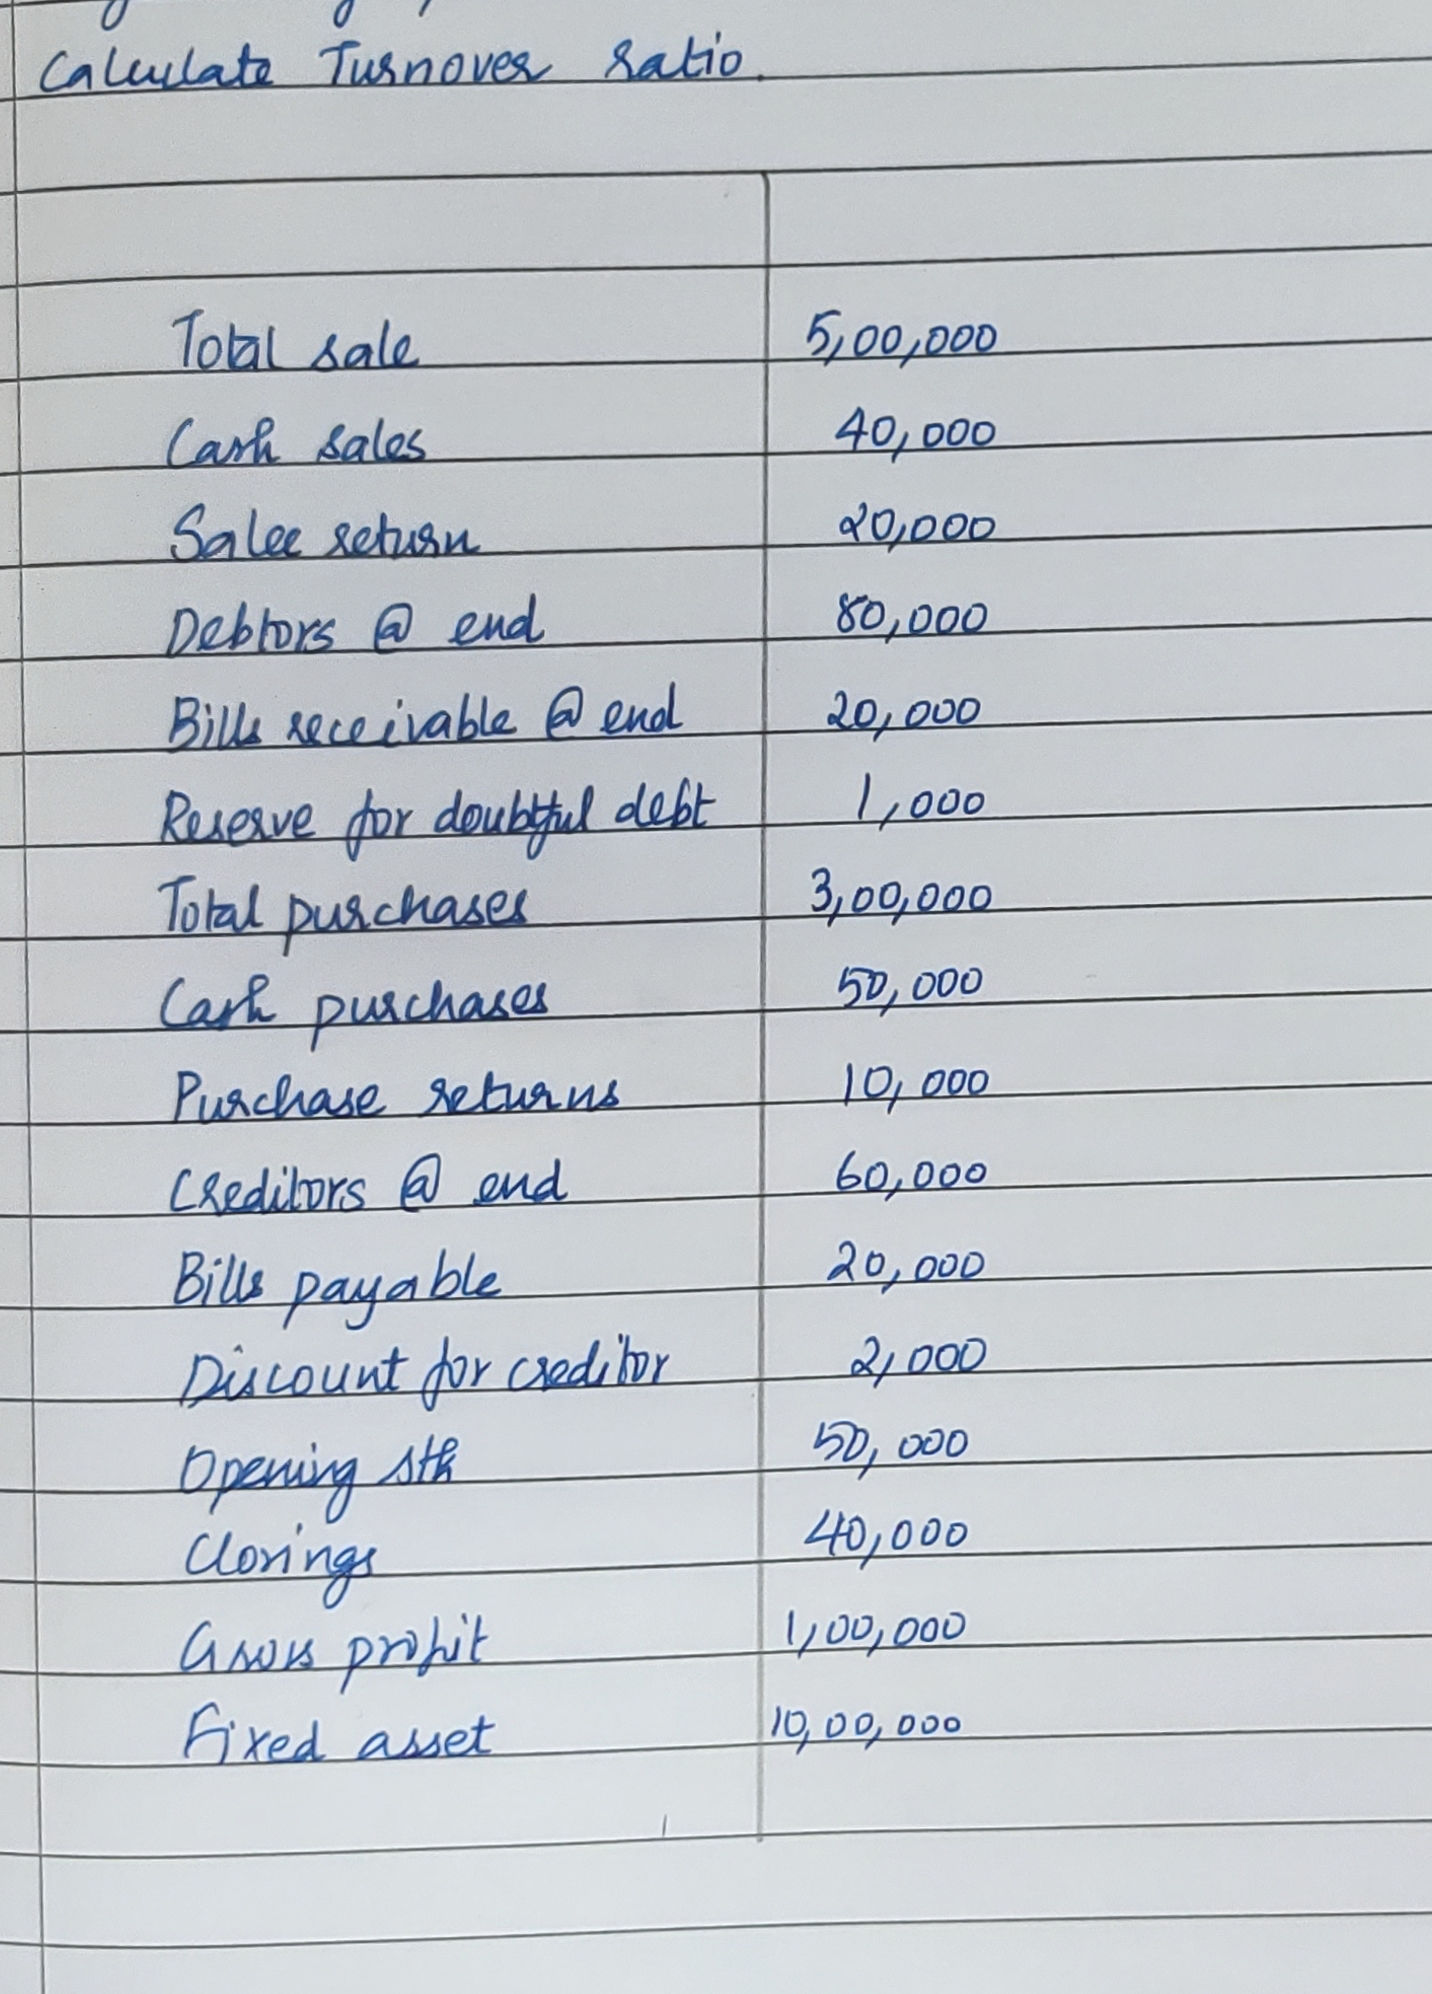 Calculate Turnover ratio.
Total sale 5,00,000
Cash sales 40,000
Sales return 20,000
Debtors @ end 80,000
Bills receivable @ end 20,000
Reserve for doubtful debt 1,000
Total purchases 3,00,000
Cash purchases 50,000
Purchase returns 10,000
Creditors @ end 60,000
Bills payable 20,000
Discount for creditor 2,000
Opening stk 50,000
Closings 40,000
Gross profit 1,00,000
Fixed asset 10,00,000